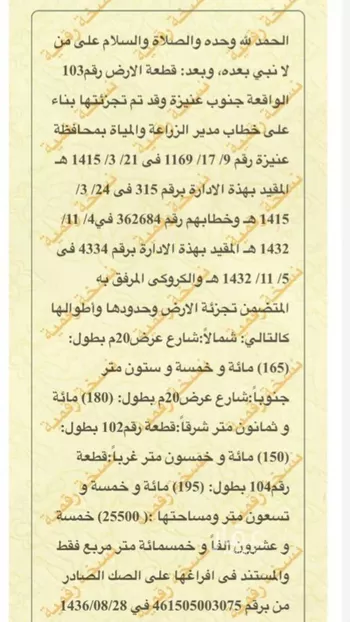 الحمد لله وحده والصلاة والسلام على من
لا نبي بعده، وبعد: قطعة الارض رقم103
الواقعة جنوب عنيزة وقد تم تجزئتها بناء
على خطاب مدير الزراعة والمياة بمحافظة
عنيزة رقم 9/ 17/ 1169 فى 21/ 3/ 1415 هـ
المقيد بهذة الادارة برقم 315 فى 24/ 3/
1415 هـ وخطابهم رقم 362684 في4/ 11/
1432 هـ المقيد بهذة الادارة برقم 4334 فى
5/ 11/ 1432 هـ والكروكى المرفق به
المتضمن تجزئة الارض وحدودها وأطوالها
كالتالي: شمالاً:شارع عرض20م بطول:
(165) مائة و خمسة و ستون متر
جنوباً:شارع عرض20م بطول: (180) مائة
و ثمانون متر شرقاً:قطعة رقم102 بطول:
(150) مائة و خمسون متر غرباً:قطعة
رقم104 بطول: (195) مائة و خمسة و
تسعون متر ومساحتها :( 25500) خمسة
و عشرون الفاً و خمسمائة متر مربع فقط
والمستند فى افراغها على الصك الصادر
من برقم 461505003075 في 1436/08/28
نسخة رقمية